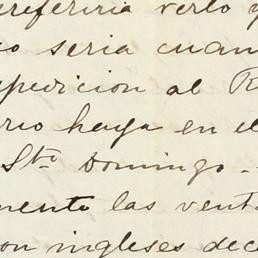 referiria verlo y
co seria cuan
pedicion al R
rio haya en el
Sto Domingo.-
mente las vent
on ingleses dec